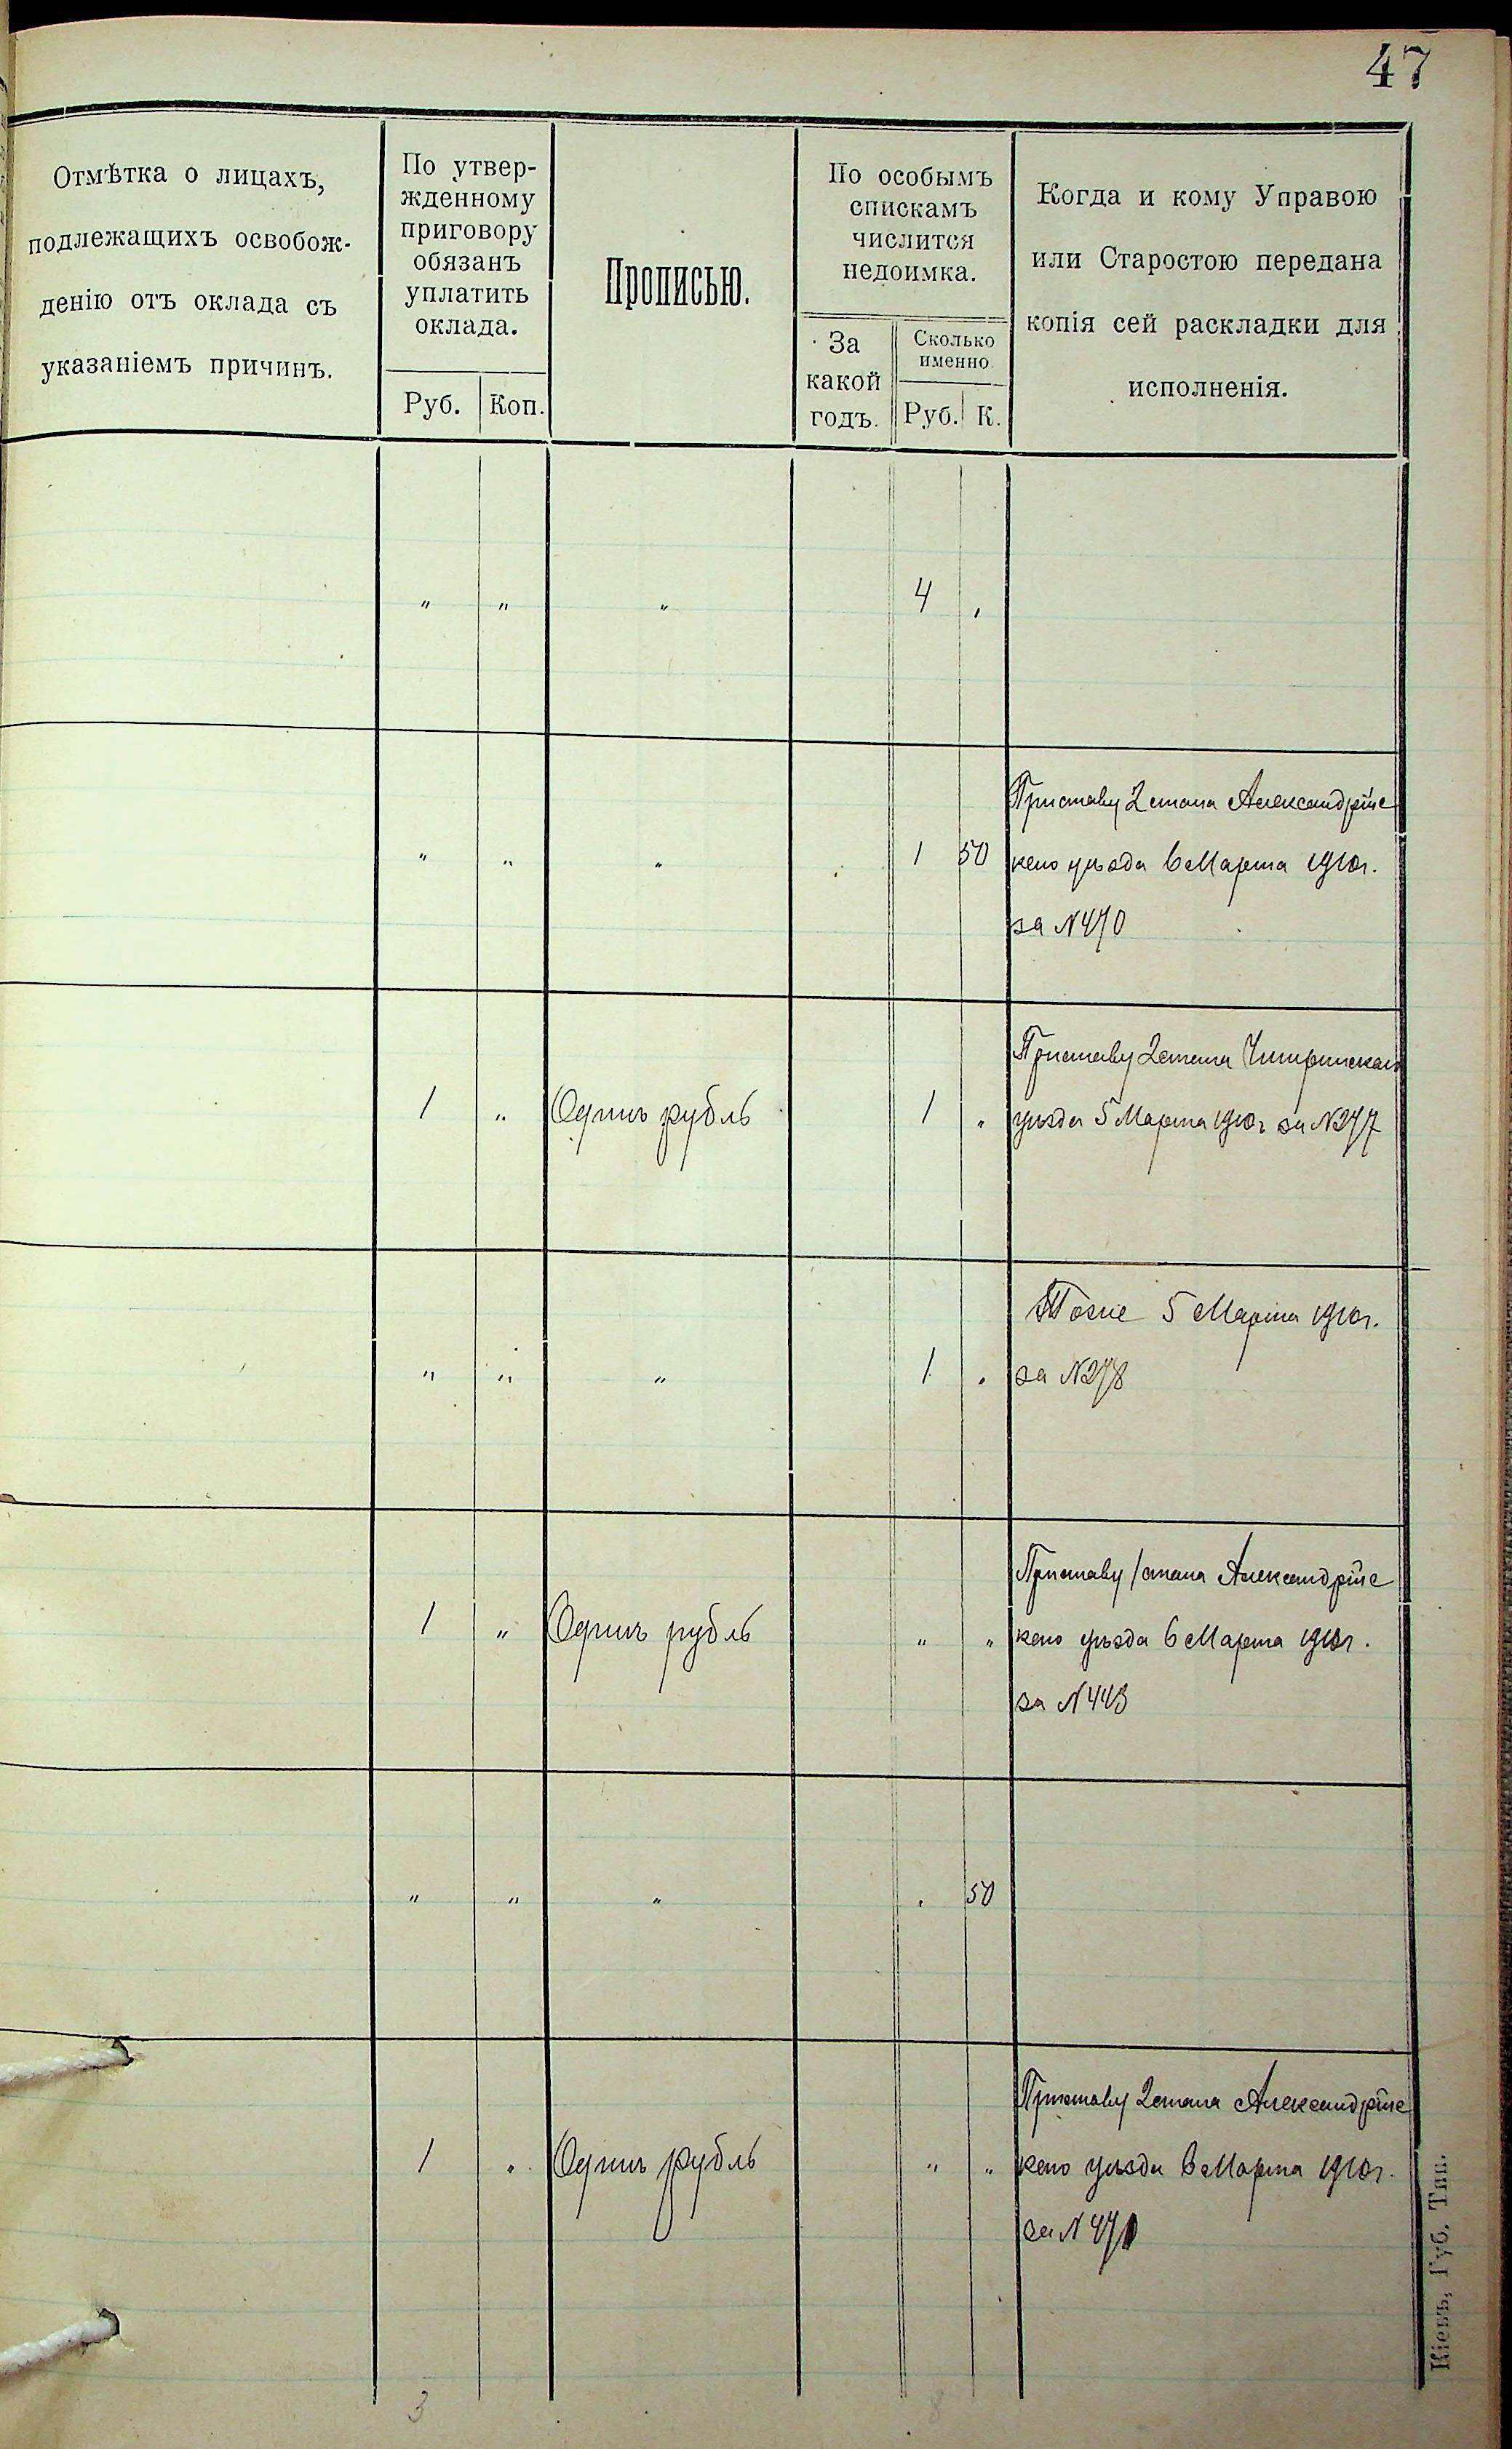 47
Отмѣтка о лицахъ,
подлежащихъ освобож-
денію отъ оклада съ
указаніемъ причинъ.
По утвер-
жденному
приговору
обязанъ
уплатить
оклада.
Руб. Коп.
Прописью.
По особымъ
спискамъ
числится
недоимка.
За
какой
годъ.
Сколько
именно
Руб. К.
Когда и кому Управою
или Старостою передана
копія сей раскладки для
исполненія.
" " " 4 "
Приставу 2 стана Александрійс
" " " 1 50 каго уѣзда 6 Марта 1910г.
за N 470
Приставу 2 стана Чигиринскаго
1 " Одинъ рубль 1 " уѣзда 5 Марта 1910г за N 277
Тоже 5 Марта 1910г.
" " " 1 " за N 278
Приставу 1 стана Александрійс
1 " Одинъ рубль " " каго уѣзда 6 Марта 1910г.
за N 443
" " " " 50
Приставу 2 стана Александрійс
1 " Одинъ рубль " " каго уѣзда 6 Марта 1910г.
за N 471
3 8
Кіевъ, Губ. Тип.